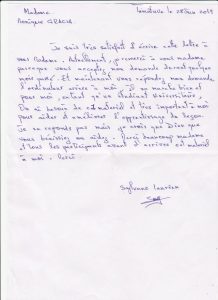 Madame
Monique GRACIA
Je suis très satisfait d'écrire cette lettre à
vous Madame. Actuellement, je remercie à vous madame
parce que vous acceptez mon demande de quelques
mois passé. Et maintenant vous répondez mon demande
l'ordinateur arrivée à moi. Il marche bien et
pour moi, entant qu'un étudiant Universitaire,
On ai besoin de ce matériel et très important à moi
pour aider et améliorer l'apprentissage de leçon.
Je ne réponds pas mais je crois que Dieu que
vous bénisse vos aides. Merci beaucoup madame
et tous les participants avant d'arrivée ce matériel
à moi. Merci
Sylvano Laurien